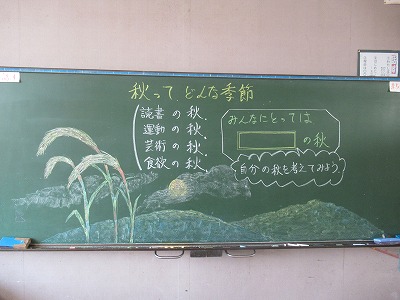 秋って、どんな季節
読書の秋、
運動の秋、
芸術の秋、
食欲の秋、
みんなにとっては
の秋
自分の秋を考えてみよう